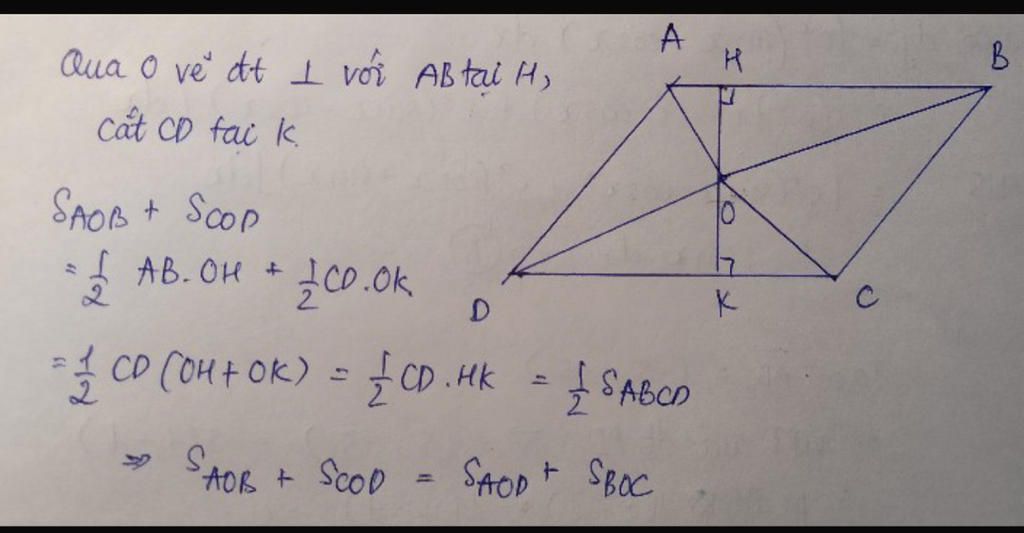 Qua O vẽ đt ⊥ với AB tại H,
cắt CD tại K.
S_AOB + S_COD
= 1/2 AB.OH + 1/2 CD.OK
= 1/2 CD (OH + OK) = 1/2 CD.HK = 1/2 S_ABCD
⇒ S_AOB + S_COD = S_AOD + S_BOC
A H B
O
D K C